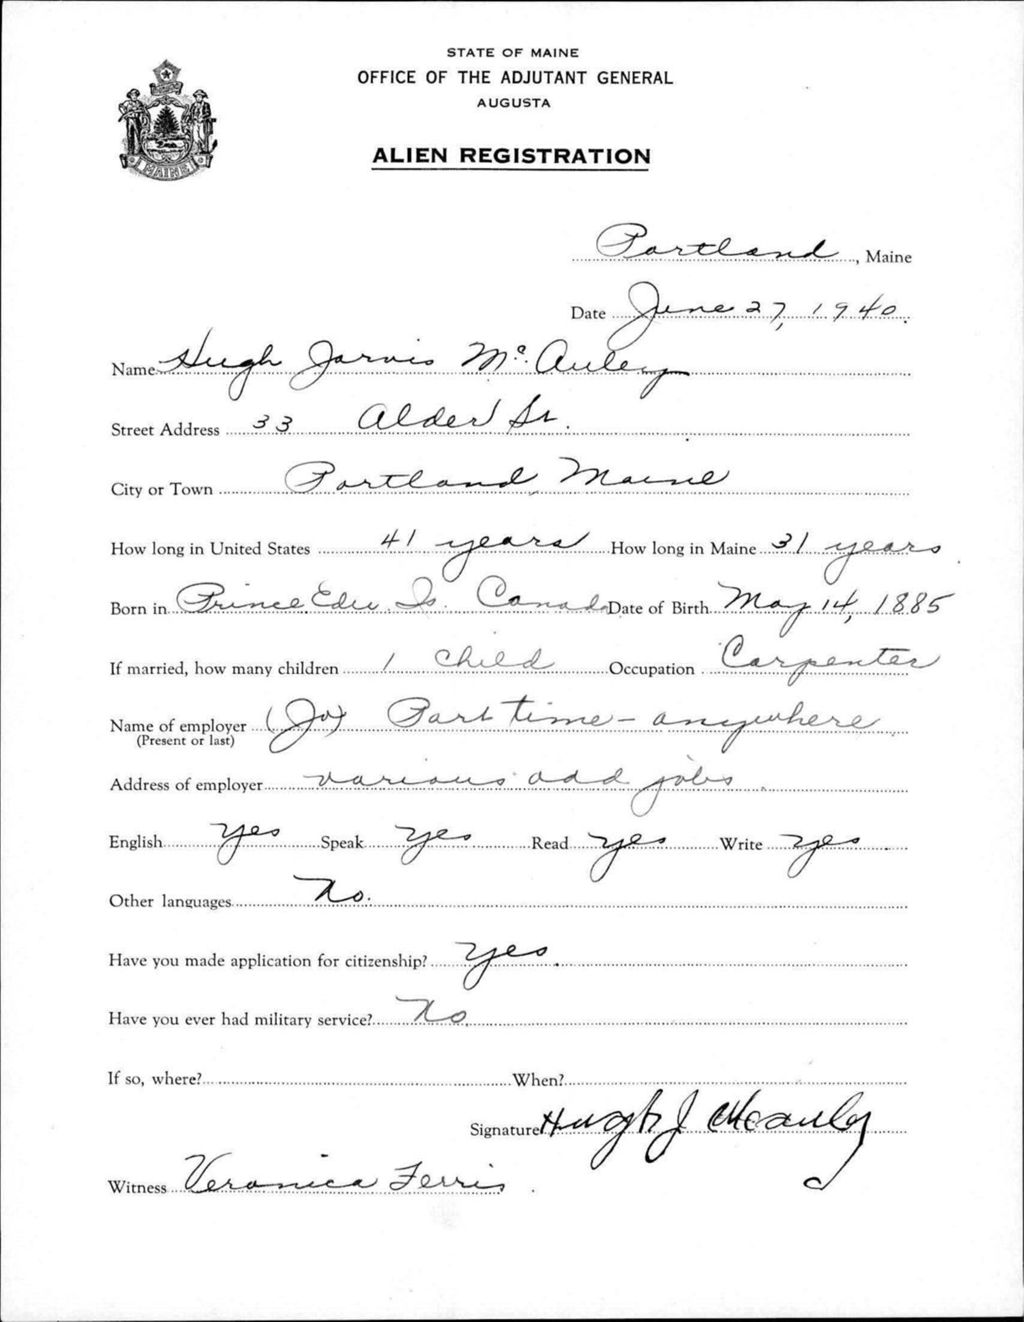 STATE OF MAINE
OFFICE OF THE ADJUTANT GENERAL
AUGUSTA
ALIEN REGISTRATION
MAINE
Portland, Maine
Date June 27, 1940.
Name Hugh Jarvis Mc. Auley
Street Address 33 Alder St.
City or Town Portland, Maine
How long in United States 41 years How long in Maine 31 years
Born in Prince Edw. Is. Canada Date of Birth May 14, 1885
If married, how many children 1 child Occupation Carpenter
Name of employer (Jo) Part time - anywhere
(Present or last)
Address of employer various odd jobs.
English yes Speak yes Read yes Write yes
Other languages No.
Have you made application for citizenship? yes
Have you ever had military service? No
If so, where? When?
Signature Hugh J McAuley
Witness Veronica Ferris